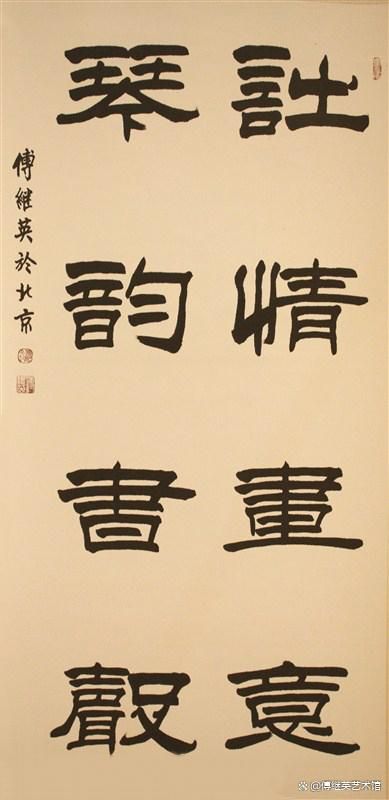 詩情畫意
琴韵書聲
傅継英於北京
@傅继英艺术馆